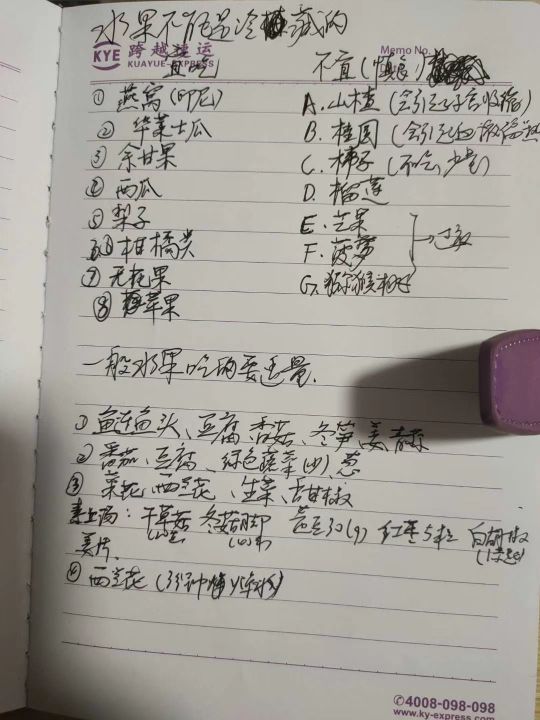 水果不能是冷藏的
KYE 跨越速运 Memo No.
KUAYUE-EXPRESS
宜吃 不宜(慎食)
① 燕窝(印尼) A. 山楂(会引起子宫收缩)
② 华莱士瓜 B. 桂圆(会引起
③ 余甘果 C. 柿子(不吃,少量)
④ 西瓜 D. 榴莲
⑤ 梨子 E. 芒果
⑥ 柑橘类 F. 菠萝 →过敏
⑦ 无花果 G. 猕猴桃
⑧ 苹果
一般水果吃的要适量.
① 鲢鱼头、豆腐、香菇、冬笋、姜
② 番茄、豆腐、绿色蔬菜(少)、葱
③ 菜花、西兰花、生菜、甜椒
干草菇 冬菇脚 30(g) 红枣5粒 白胡椒
姜片.
④ 西兰花(3分钟
✆4008-098-098
www.ky-express.com